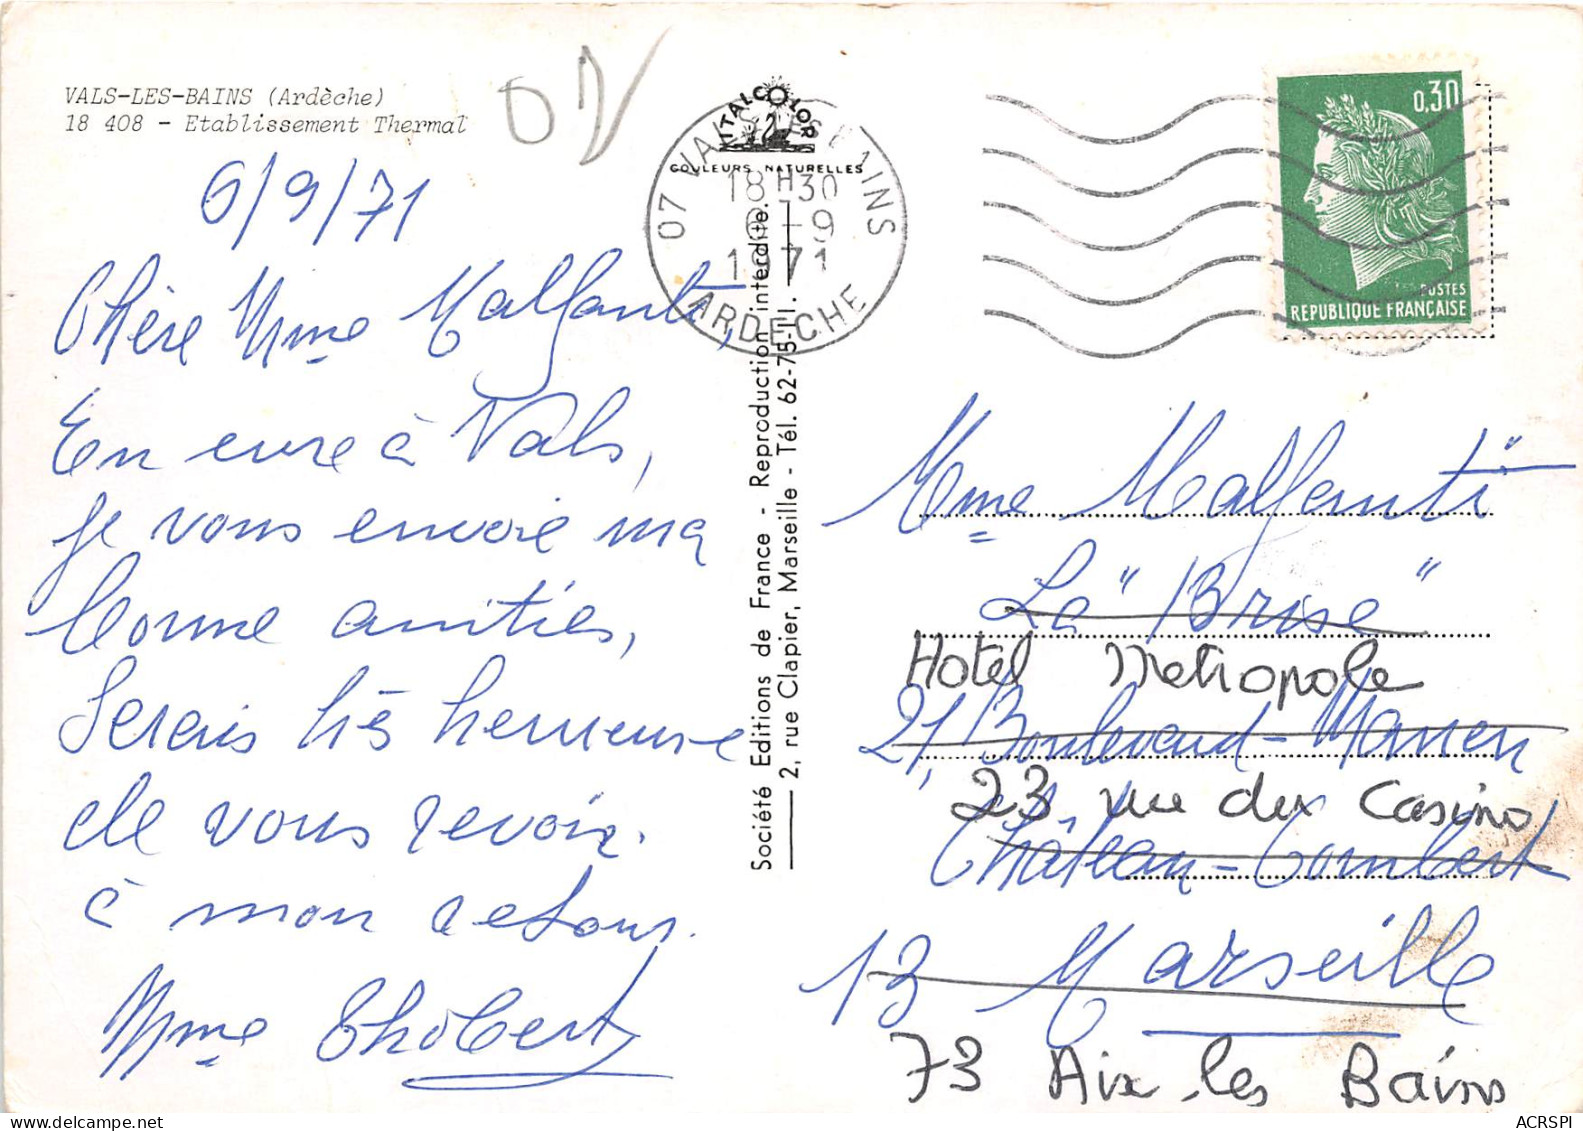 VALS-LES-BAINS (Ardèche)
18 408 - Etablissement Thermal
6/9/71
Chère Mme Malfanti,
En cure à Vals,
je vous envoie ma
bonne amitiés,
Serais très heureuse
de vous revoir.
à mon retour.
Mme Thobert
VITALCOLOR
COULEURS NATURELLES
07 VALS LES BAINS
18H30
6-9
1971
ARDECHE
Société Editions de France - Reproduction interdite.
2, rue Clapier, Marseille - Tél. 62-75-11.
0,30
POSTES
REPUBLIQUE FRANÇAISE
Mme Malfanti
La "Brise"
Hotel Metropole
21, Boulevard-Manen
23 rue du Casino
Château-Gombert
13 Marseille
73 Aix-les Bains
ACRSPI